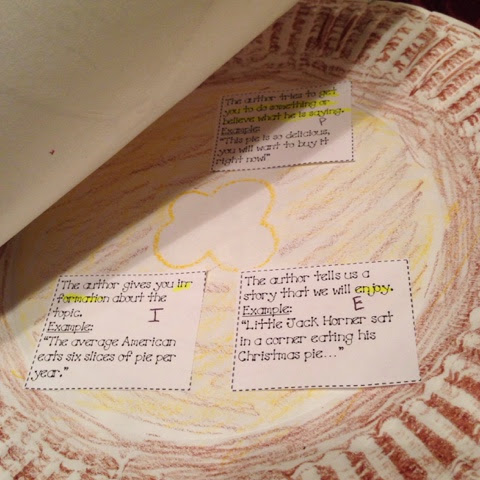 The author tries to get
you to do something or
believe what he is saying.
Example:
P
"This pie is so delicious,
you will want to buy it
right now!"
The author gives you in
formation about the
topic.
I
Example:
"The average American
eats six slices of pie per
year."
The author tells us a
story that we will enjoy.
Example:
E
"Little Jack Horner sat
in a corner eating his
Christmas pie..."